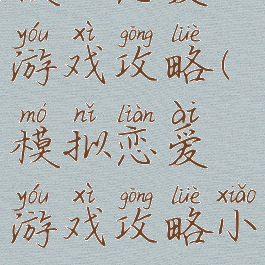 yóu xì gōng lüè
游戏攻略(
mó nǐ liàn ài
模拟恋爱
yóu xì gōng lüè xiǎo
游戏攻略小